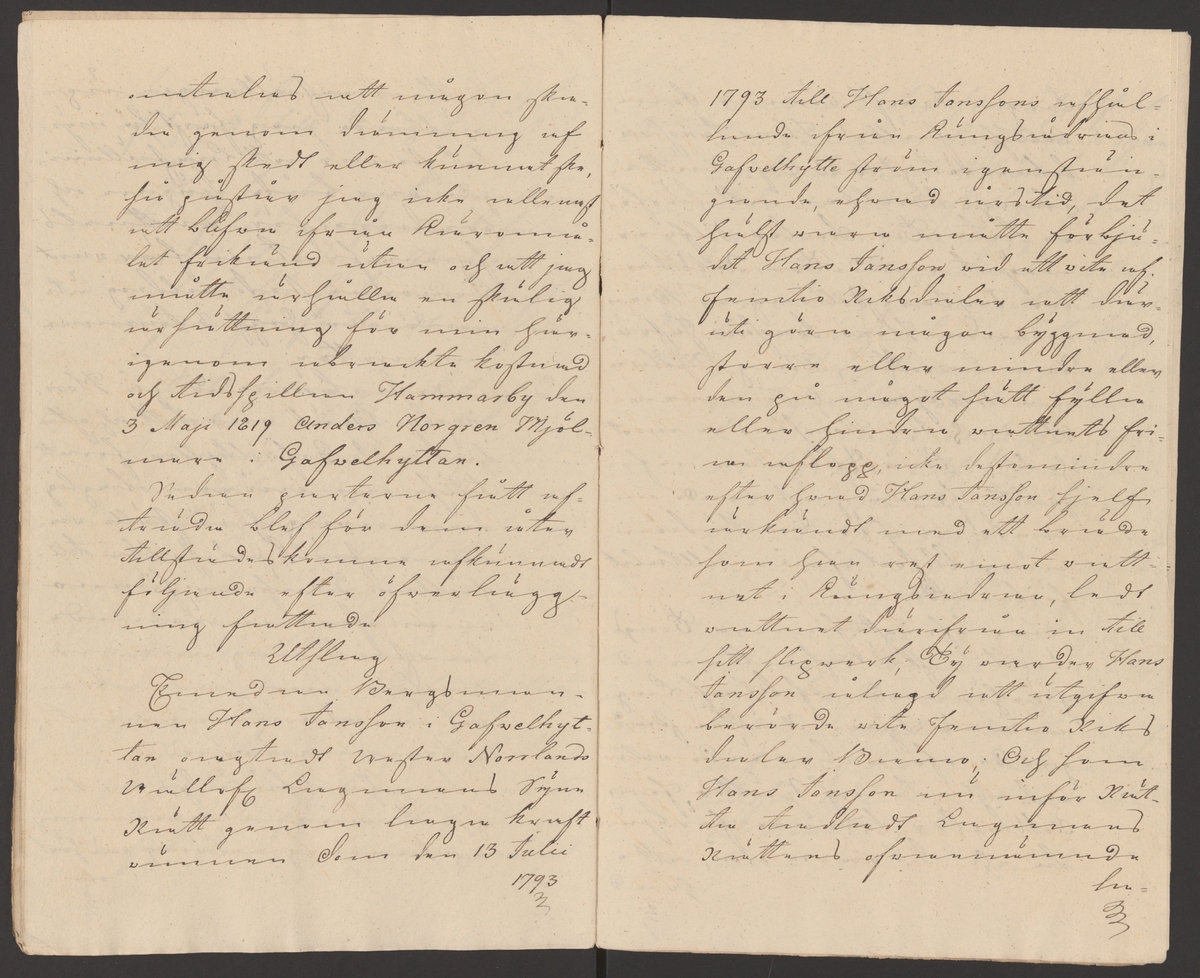 omtalas att någon ska-
da genom dämning af
mig skedt eller kunnat ske,
så påstår jag icke allenast
att blifva ifrån Käromå-
let frikänd utan och att jag
måtte ärhålla en skälig
ärsättning för min här-
igenom abrackte kostnad
och tidsspillan Hammarby den
3 Maji 1819 Anders Norgren Mjöl-
nare i Gafvelhyttan.
Sedan parterne fått af-
träda blef för dem åter
tillstädeskomne afkunnadt
följande efter öfverlägg-
ning fattade
Utslag
Emedan Bergsman-
nen Hans Jansson i Gafvelhyt-
tan oagtadt Wester Norrlands
Wällofl Lagmans Syne
Rätt genom laga kraft
vunnen Dom den 13 Julii
1793
1793 till Hans Janssons afhål-
lande ifrån Kungsådrans i
Gafvelhytte ström igenstän-
gande, ehvad årstid, det
hälst vara måtte förbju-
dit Hans Jansson vid ett vite af
Femtio Riksdaler att där-
uti göra någon byggnad,
storre eller mindre eller
den på något sätt fylla
eller hindra vattnets fri-
a aflopp, icke destomindre
efter hvad Hans Jansson sjelf
ärkändt med ett bräde
som han rest emot vatt-
net i Kungsådran, ledt
vattnet därifrån in till
sitt slipwerk, Ty varder Hans
Jansson ålagd att utgifva
berörde vite Femtio Riks
daler Banco; Och som
Hans Jansson nu inför Rät-
ta Lagmans
Rättens ofvannämnde
la-